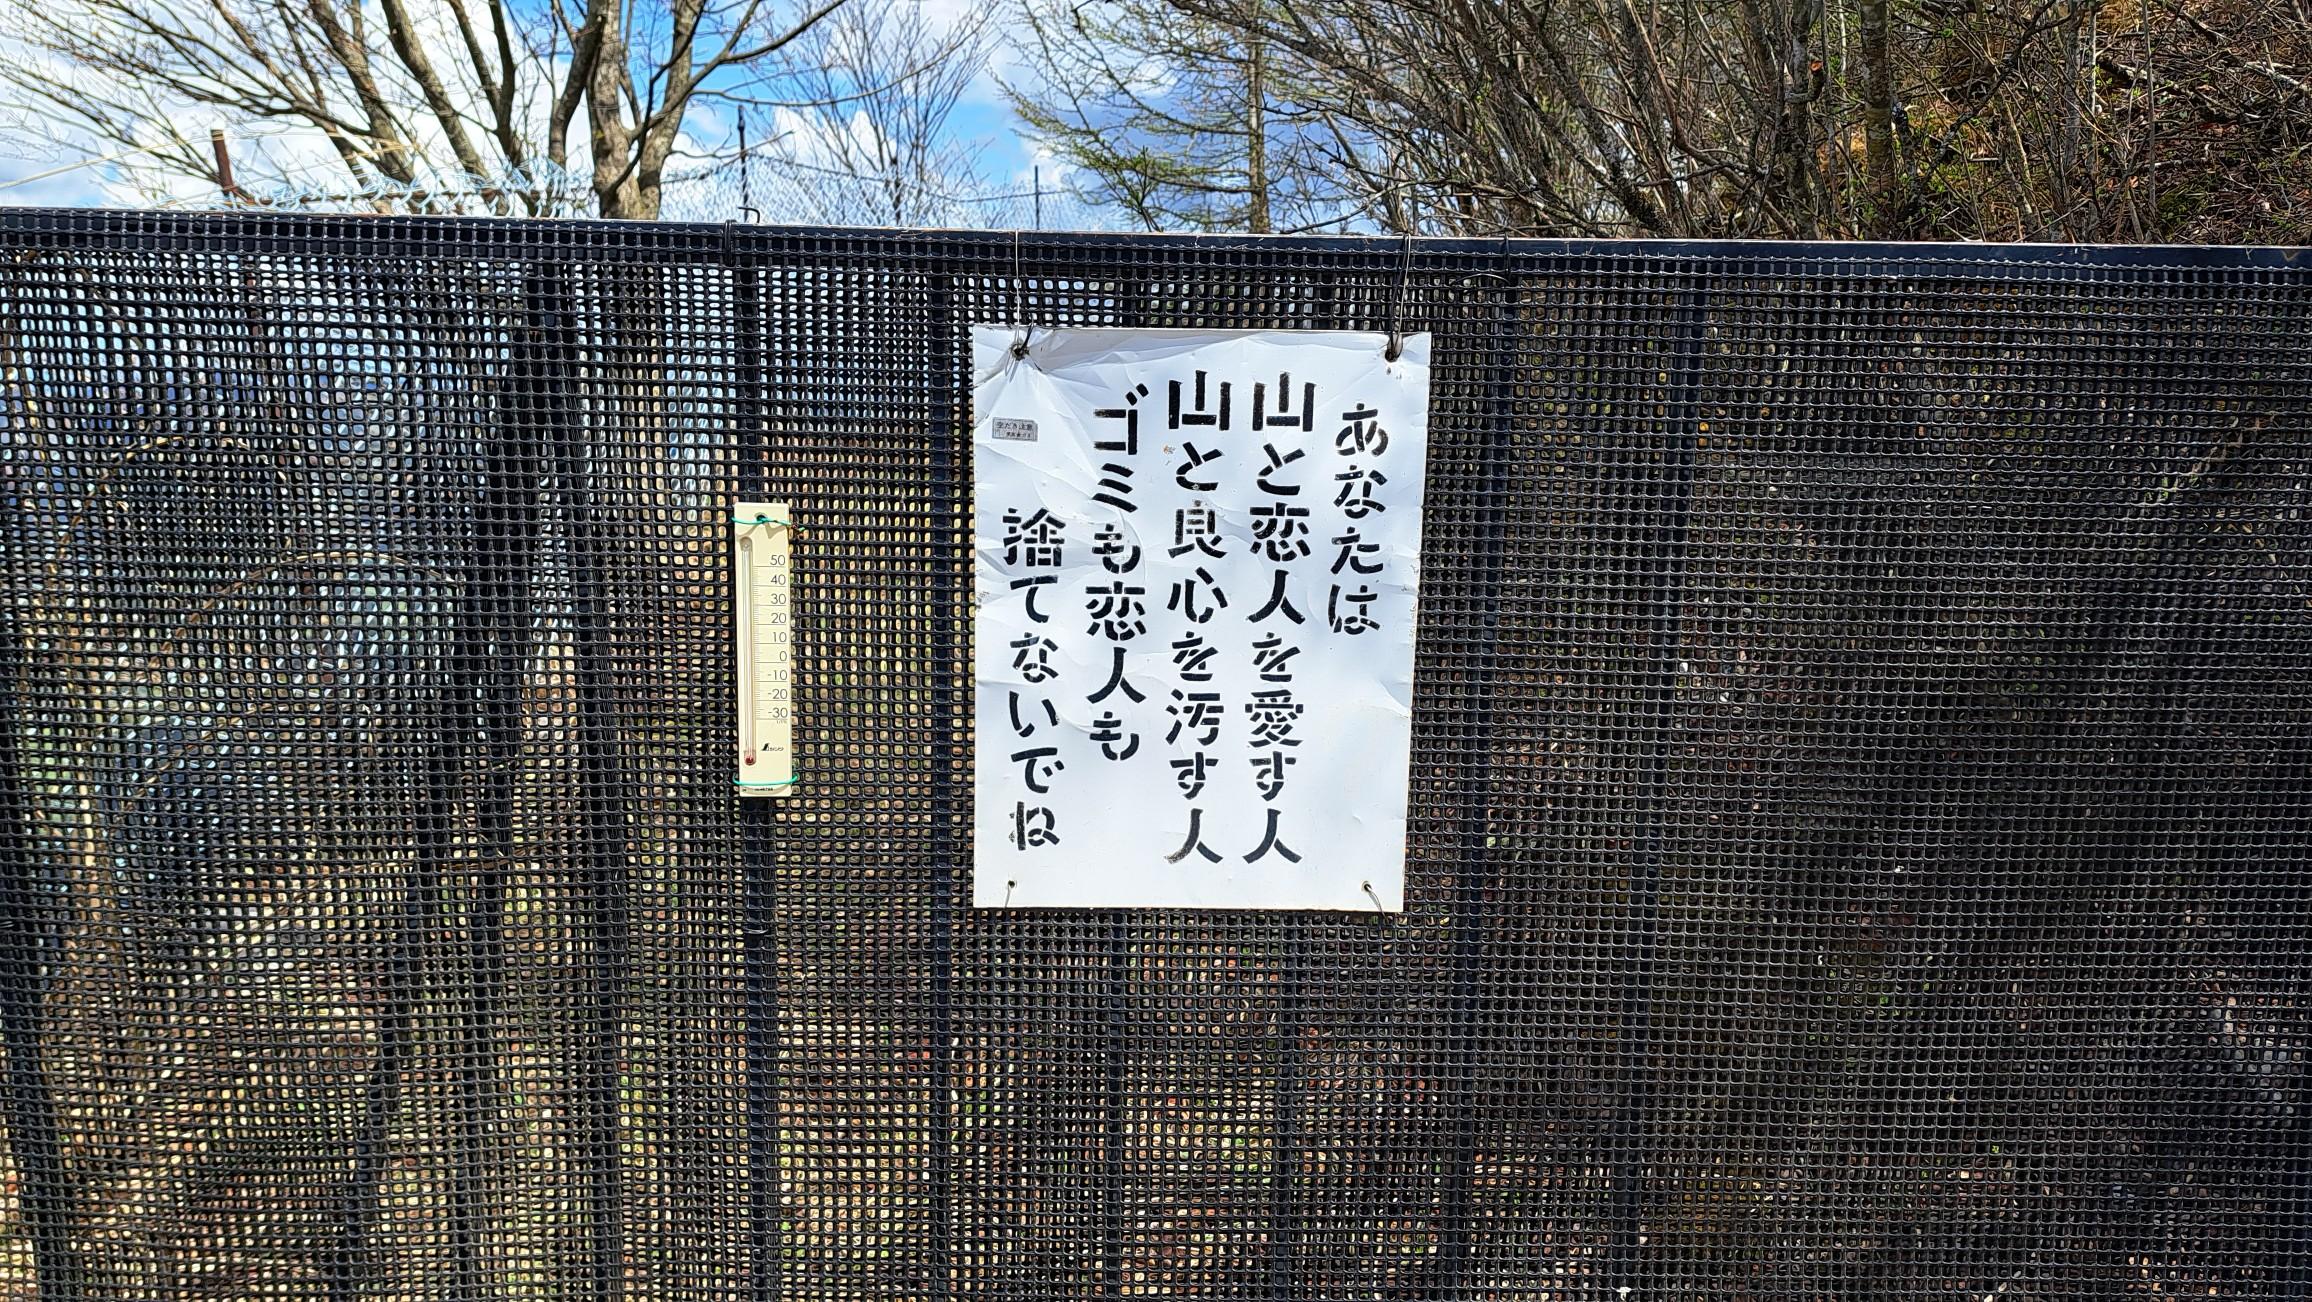 あなたは
山と恋人を愛す人
山と良心を汚す人
ゴミも恋人も
捨てないでね
50
40
30
20
10
0
-10
-20
-30